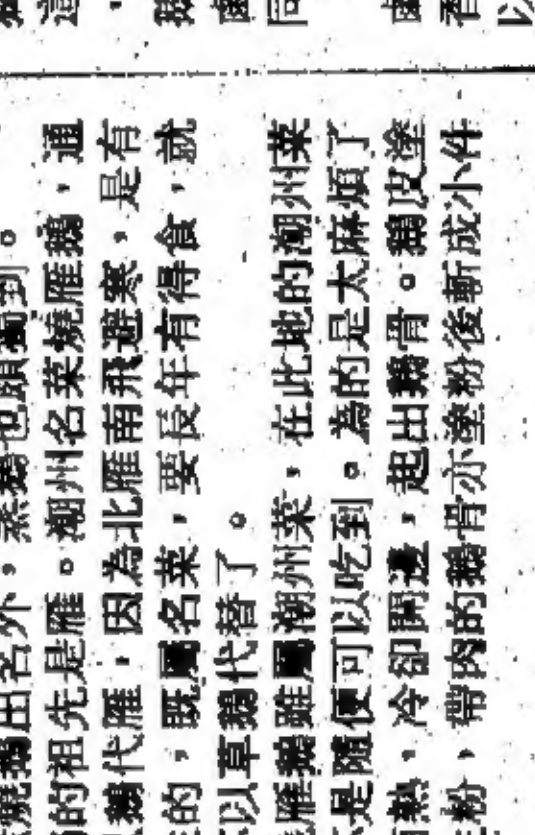 燒鵝出名外,蒸鵝也頗獨到。
的祖先是雁。潮州名菜燒雁鵝,通
鵝代雁,因為北雁南飛避寒,是有
的,既屬名菜,要長年有得食,就
以草鵝代替了。
雁鵝雖屬潮州菜,在此地的潮州菜
是隨便可以吃到。為的是太麻煩了
熱,冷卻開邊,起出鵝骨。鵝皮塗
粉,帶肉的鵝骨亦塗粉後斬成小件